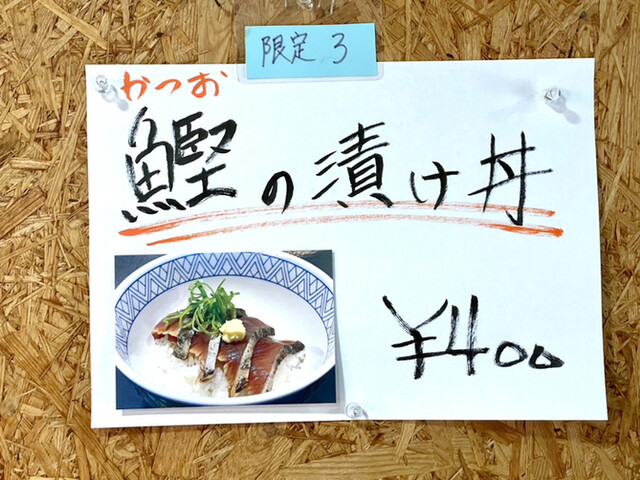 限定 3
かつお
鰹の漬け丼
¥400